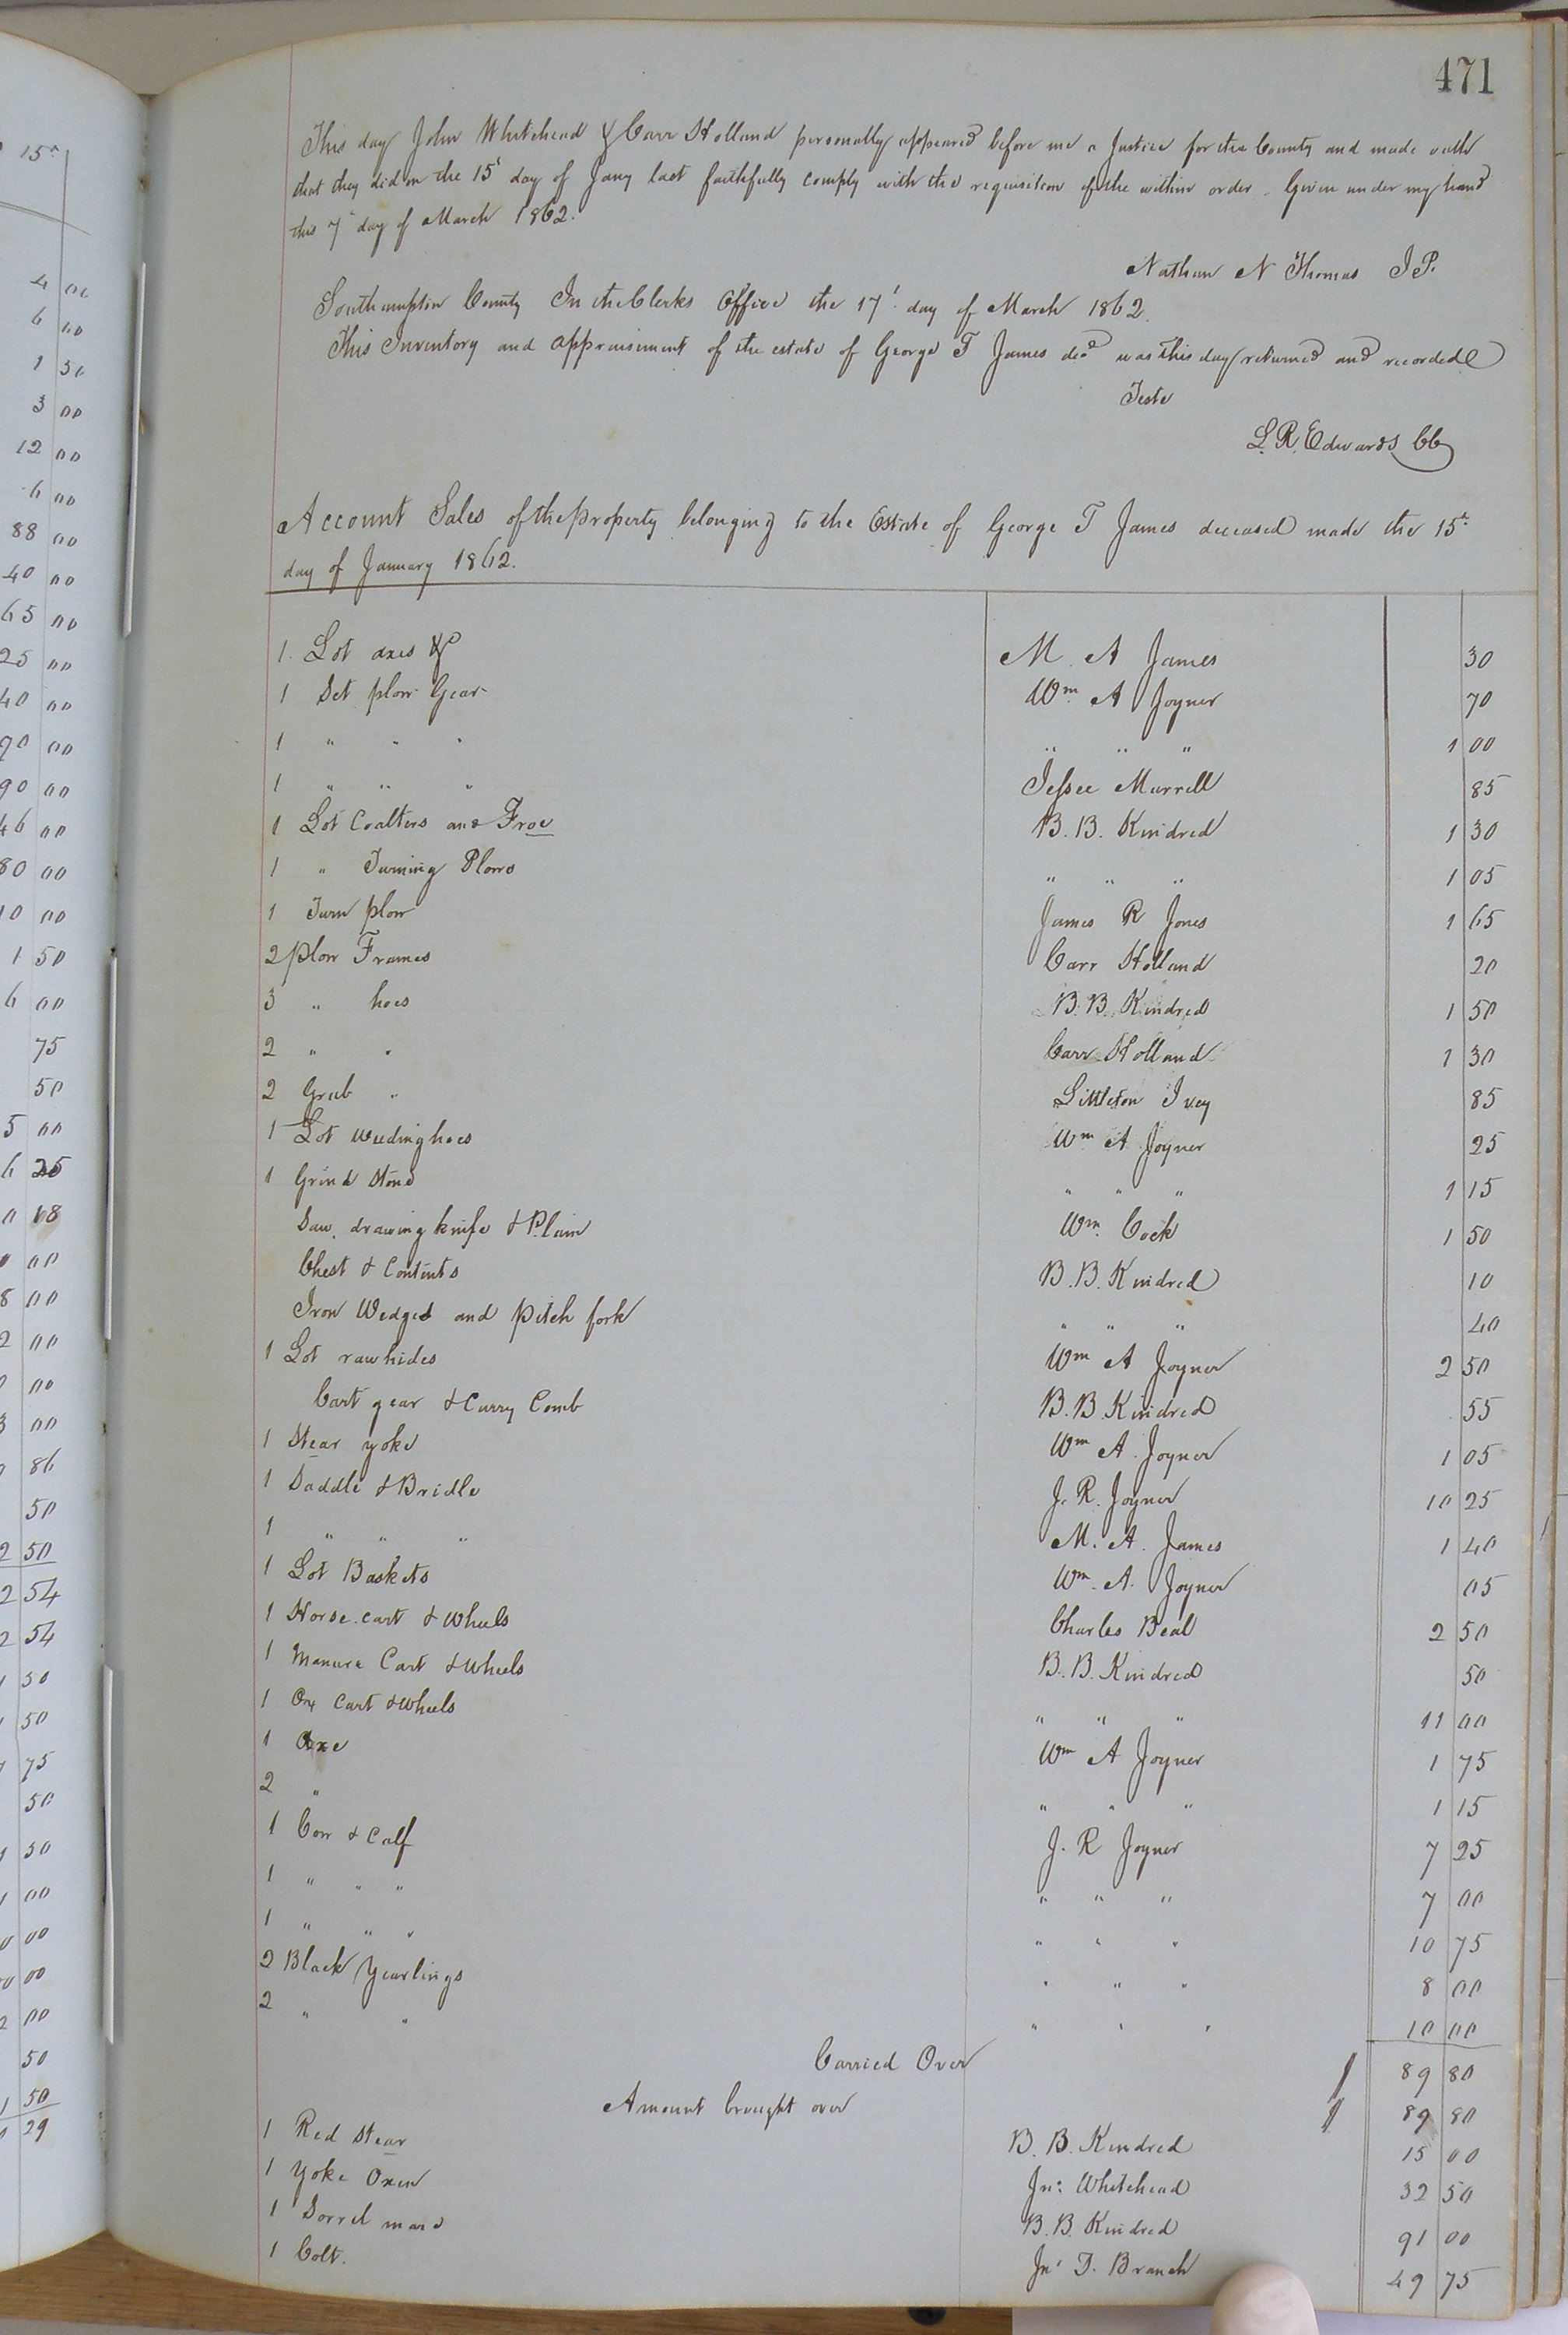 471
This day John Whitehead & Carr Holland personally appeared before me a Justice for the County and made oath
that they did on the 15t day of Jany last faithfully comply with the requisition of the within order. Given under my hand
this 7t day of March 1862.
Nathan N Thomas J.P.
Southampton County In the Clerks Office the 17t day of March 1862.
This Inventory and appraisment of the estate of George T James decd was this day returned and recorded
Teste
L. R. Edwards CC
Account Sales of the property belonging to the Estate of George T James deceased made the 15t
day of January 1862.
1. Lot axes &c M. A James 30
1 Set plow Gear Wm A Joyner 70
1 " " " " " " 1 00
1 " " " Jessee Murrell 85
1 Lot Coalters and Froe B. B. Kindred 1 30
1 " Turning Plows " " " 1 05
1 Turn plow James R Jones 1 65
2 plow Frames Carr Holland 20
3 " hoes B. B. Kindred 1 50
2 " " Carr Holland 1 30
2 Grub " Littleton Ivey 85
1 Lot weeding hoes Wm A Joyner 25
1 Grind Stone " " " 1 15
Saw, drawing knife & Plain Wm. Cock 1 50
Chest & Contents B. B. Kindred 10
Iron Wedges and pitch fork " " " 40
1 Lot rawhides Wm A Joyner 2 50
Cart gear & Curry Comb B. B. Kindred 55
1 Stear yoke Wm A. Joyner 1 05
1 Saddle & Bridle J. R. Joyner 10 25
1 " " " M. A. James 1 40
1 Lot Baskets Wm. A. Joyner 05
1 Horse cart & Wheels Charles Beal 2 50
1 Manure Cart & Wheels B. B. Kindred 50
1 Ox Cart & Wheels " " " 11 00
1 Axe Wm A Joyner 1 75
2 " " " " 1 15
1 Cow & Calf J. R Joyner 7 25
1 " " " " " " 7 00
1 " " " " " " 10 75
2 Black Yearlings " " " 8 00
2 " " " " " 10 00
Carried Over 89 80
Amount brought over 89 80
1 Red Stear B. B. Kindred 15 00
1 Yoke Oxen Jno: Whitehead 32 50
1 Sorrel mare B. B. Kindred 91 00
1 Colt. Jno D. Branch 49 75
15t
4 00
6 00
1 50
3 00
12 00
6 00
88 00
40 00
65 00
25 00
40 00
90 00
90 00
46 00
80 00
10 00
1 50
6 00
75
50
5 00
6 25